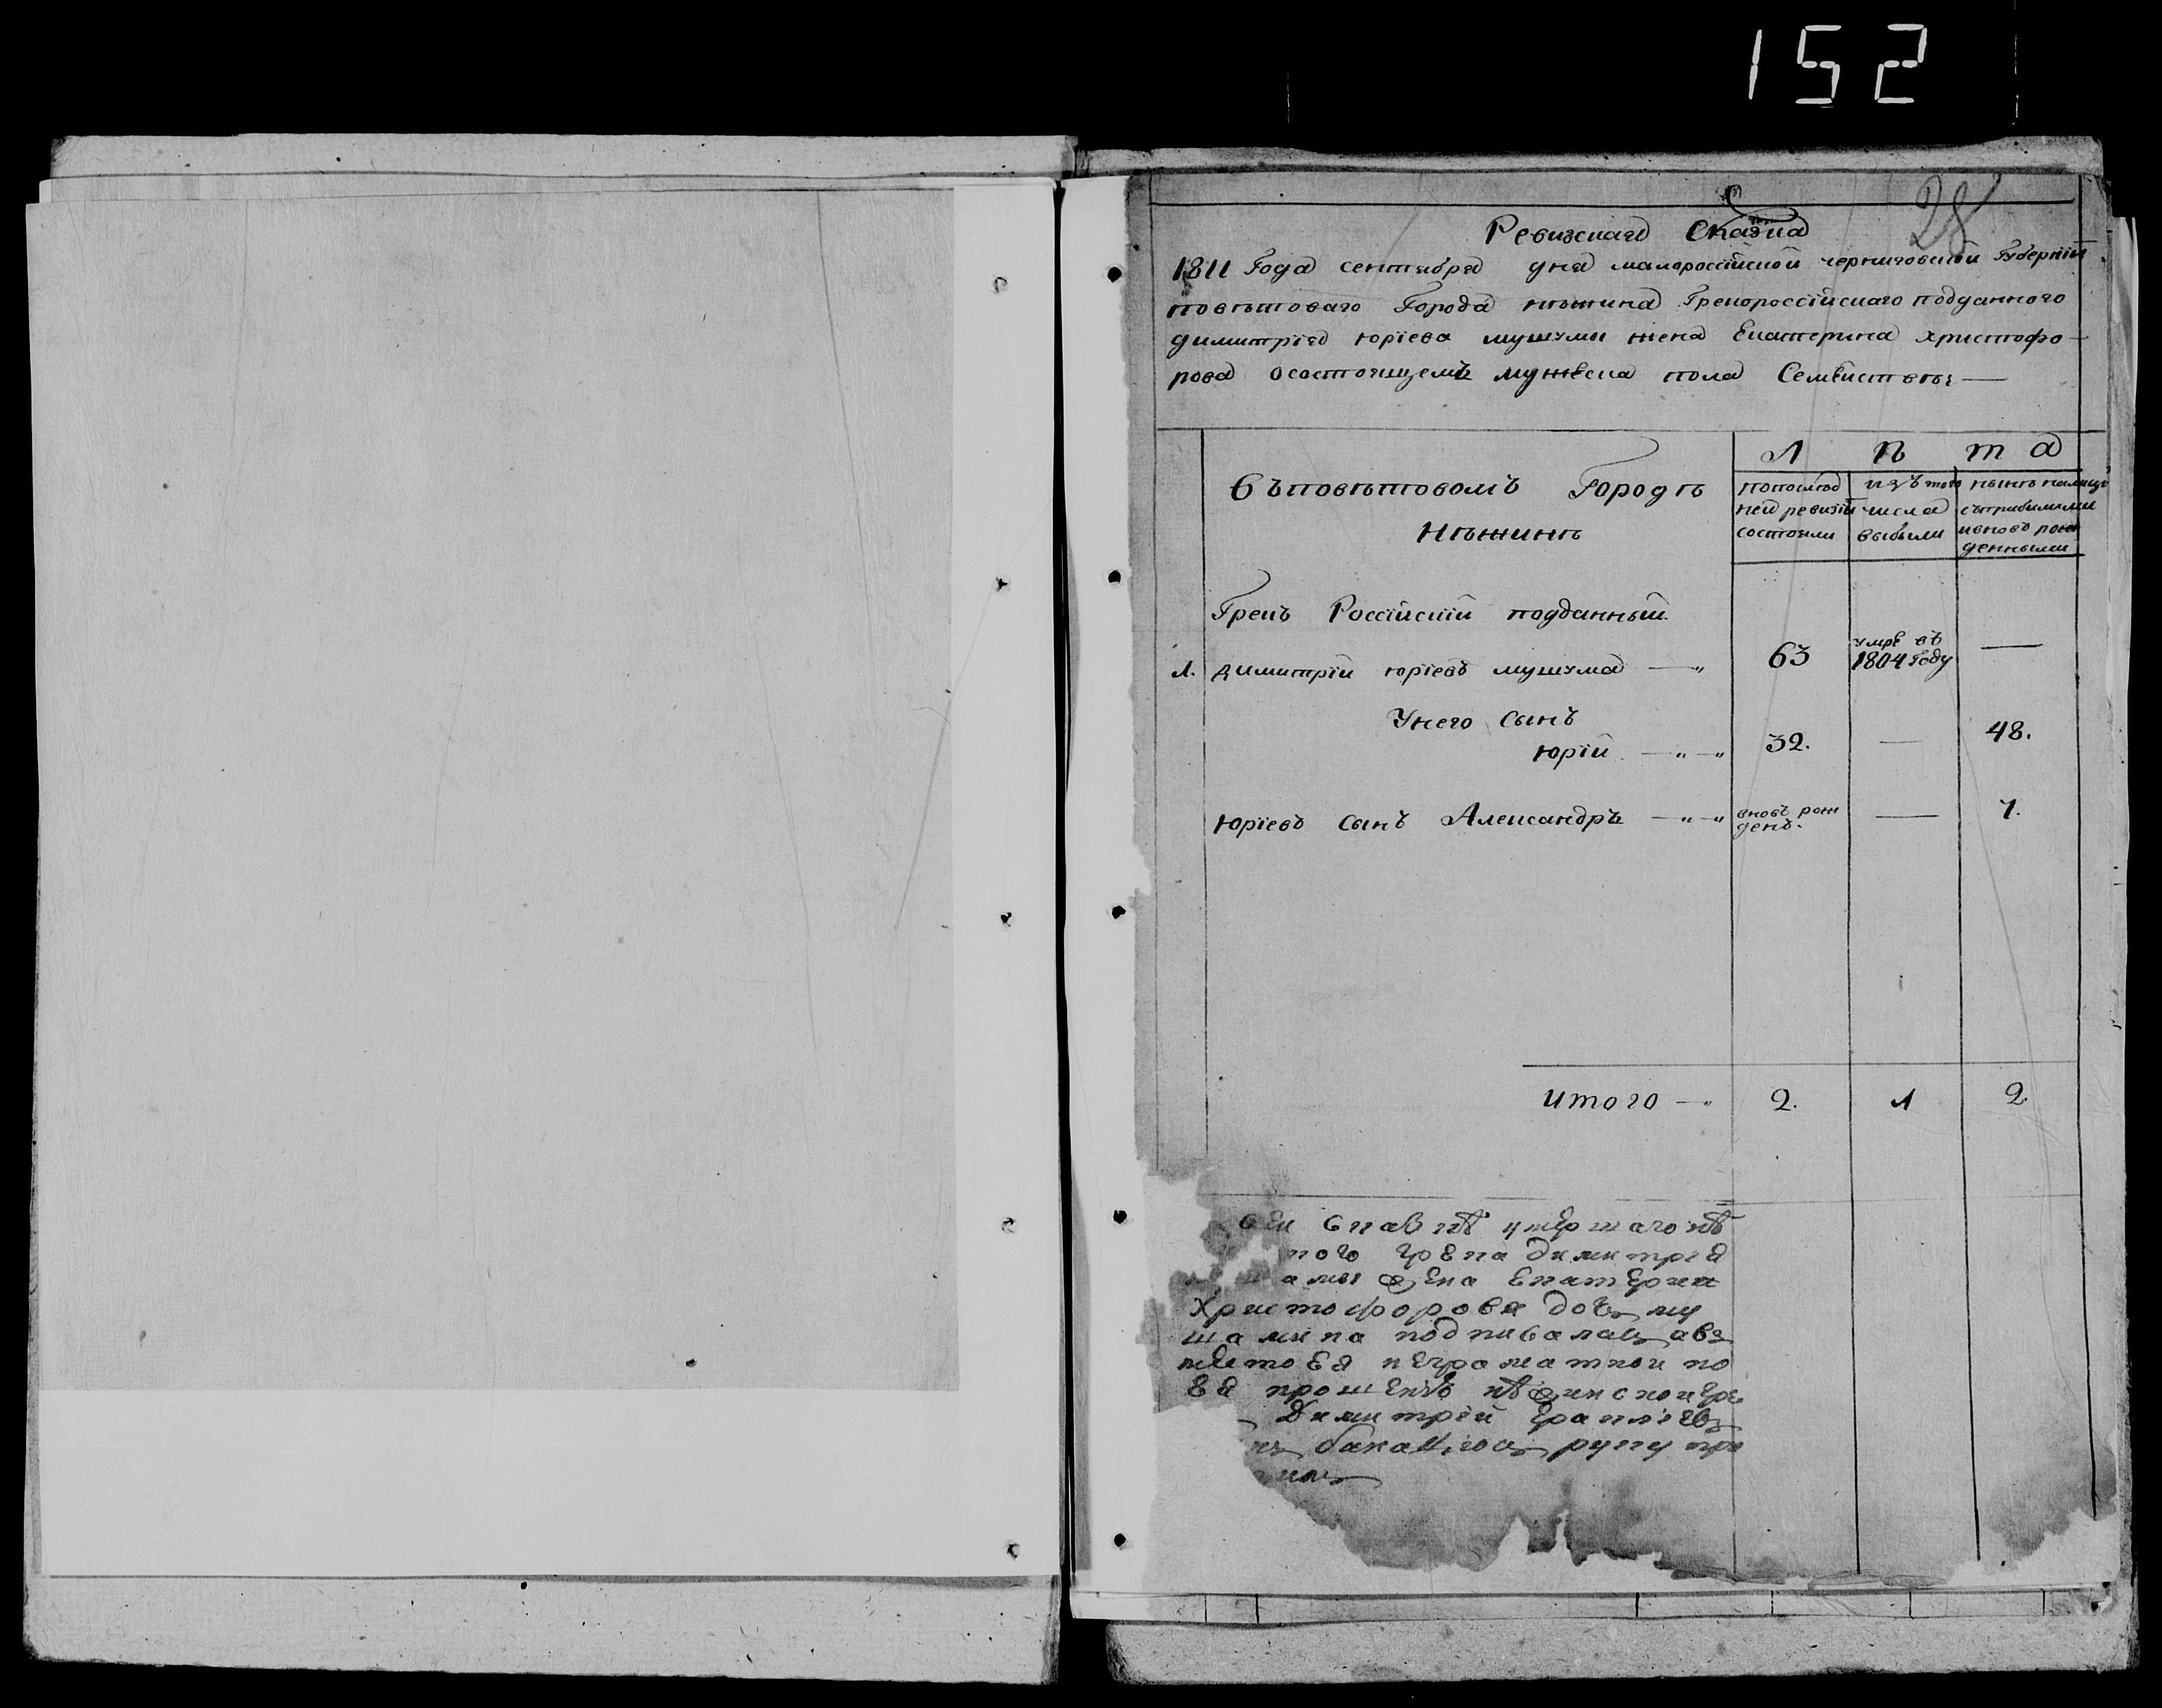 152
28
Ревизская Сказка
1811 Года сентября дня малороссійской черниговской Губерніи
повѣтоваго Города нѣжина Грекороссійскаго подданного
димитрія юріева мушумы жена Екатерина христофо-
рова осостоящемъ мужеска пола Семействѣ —
Въ повѣтовомъ Городѣ
Нѣжинѣ
Л ѣ т а
попослѣд
ней ревизіи
состояли
изъ того
числа
выбыли
нынѣ налицо
съприбылыми
ивновь рож
денными
Грекъ Россійскій подданный
1. димитрій юріевъ мушума — 63 умре въ 1804 году —
Унего Сынъ
юрій — 32. — 48.
Юріевъ Сынъ Александръ — вновь рож денъ. — 7.
Итого — 2. 1 2
сей Скаскѣ умершаго нѣ
ного грека димитрія
амы жена Екатерина
Христофорова дочь му
шамина подписалась авъ
мѣсто Ея неграматной по
Ея прошенію нѣжинской гре
Димитрій
руку при